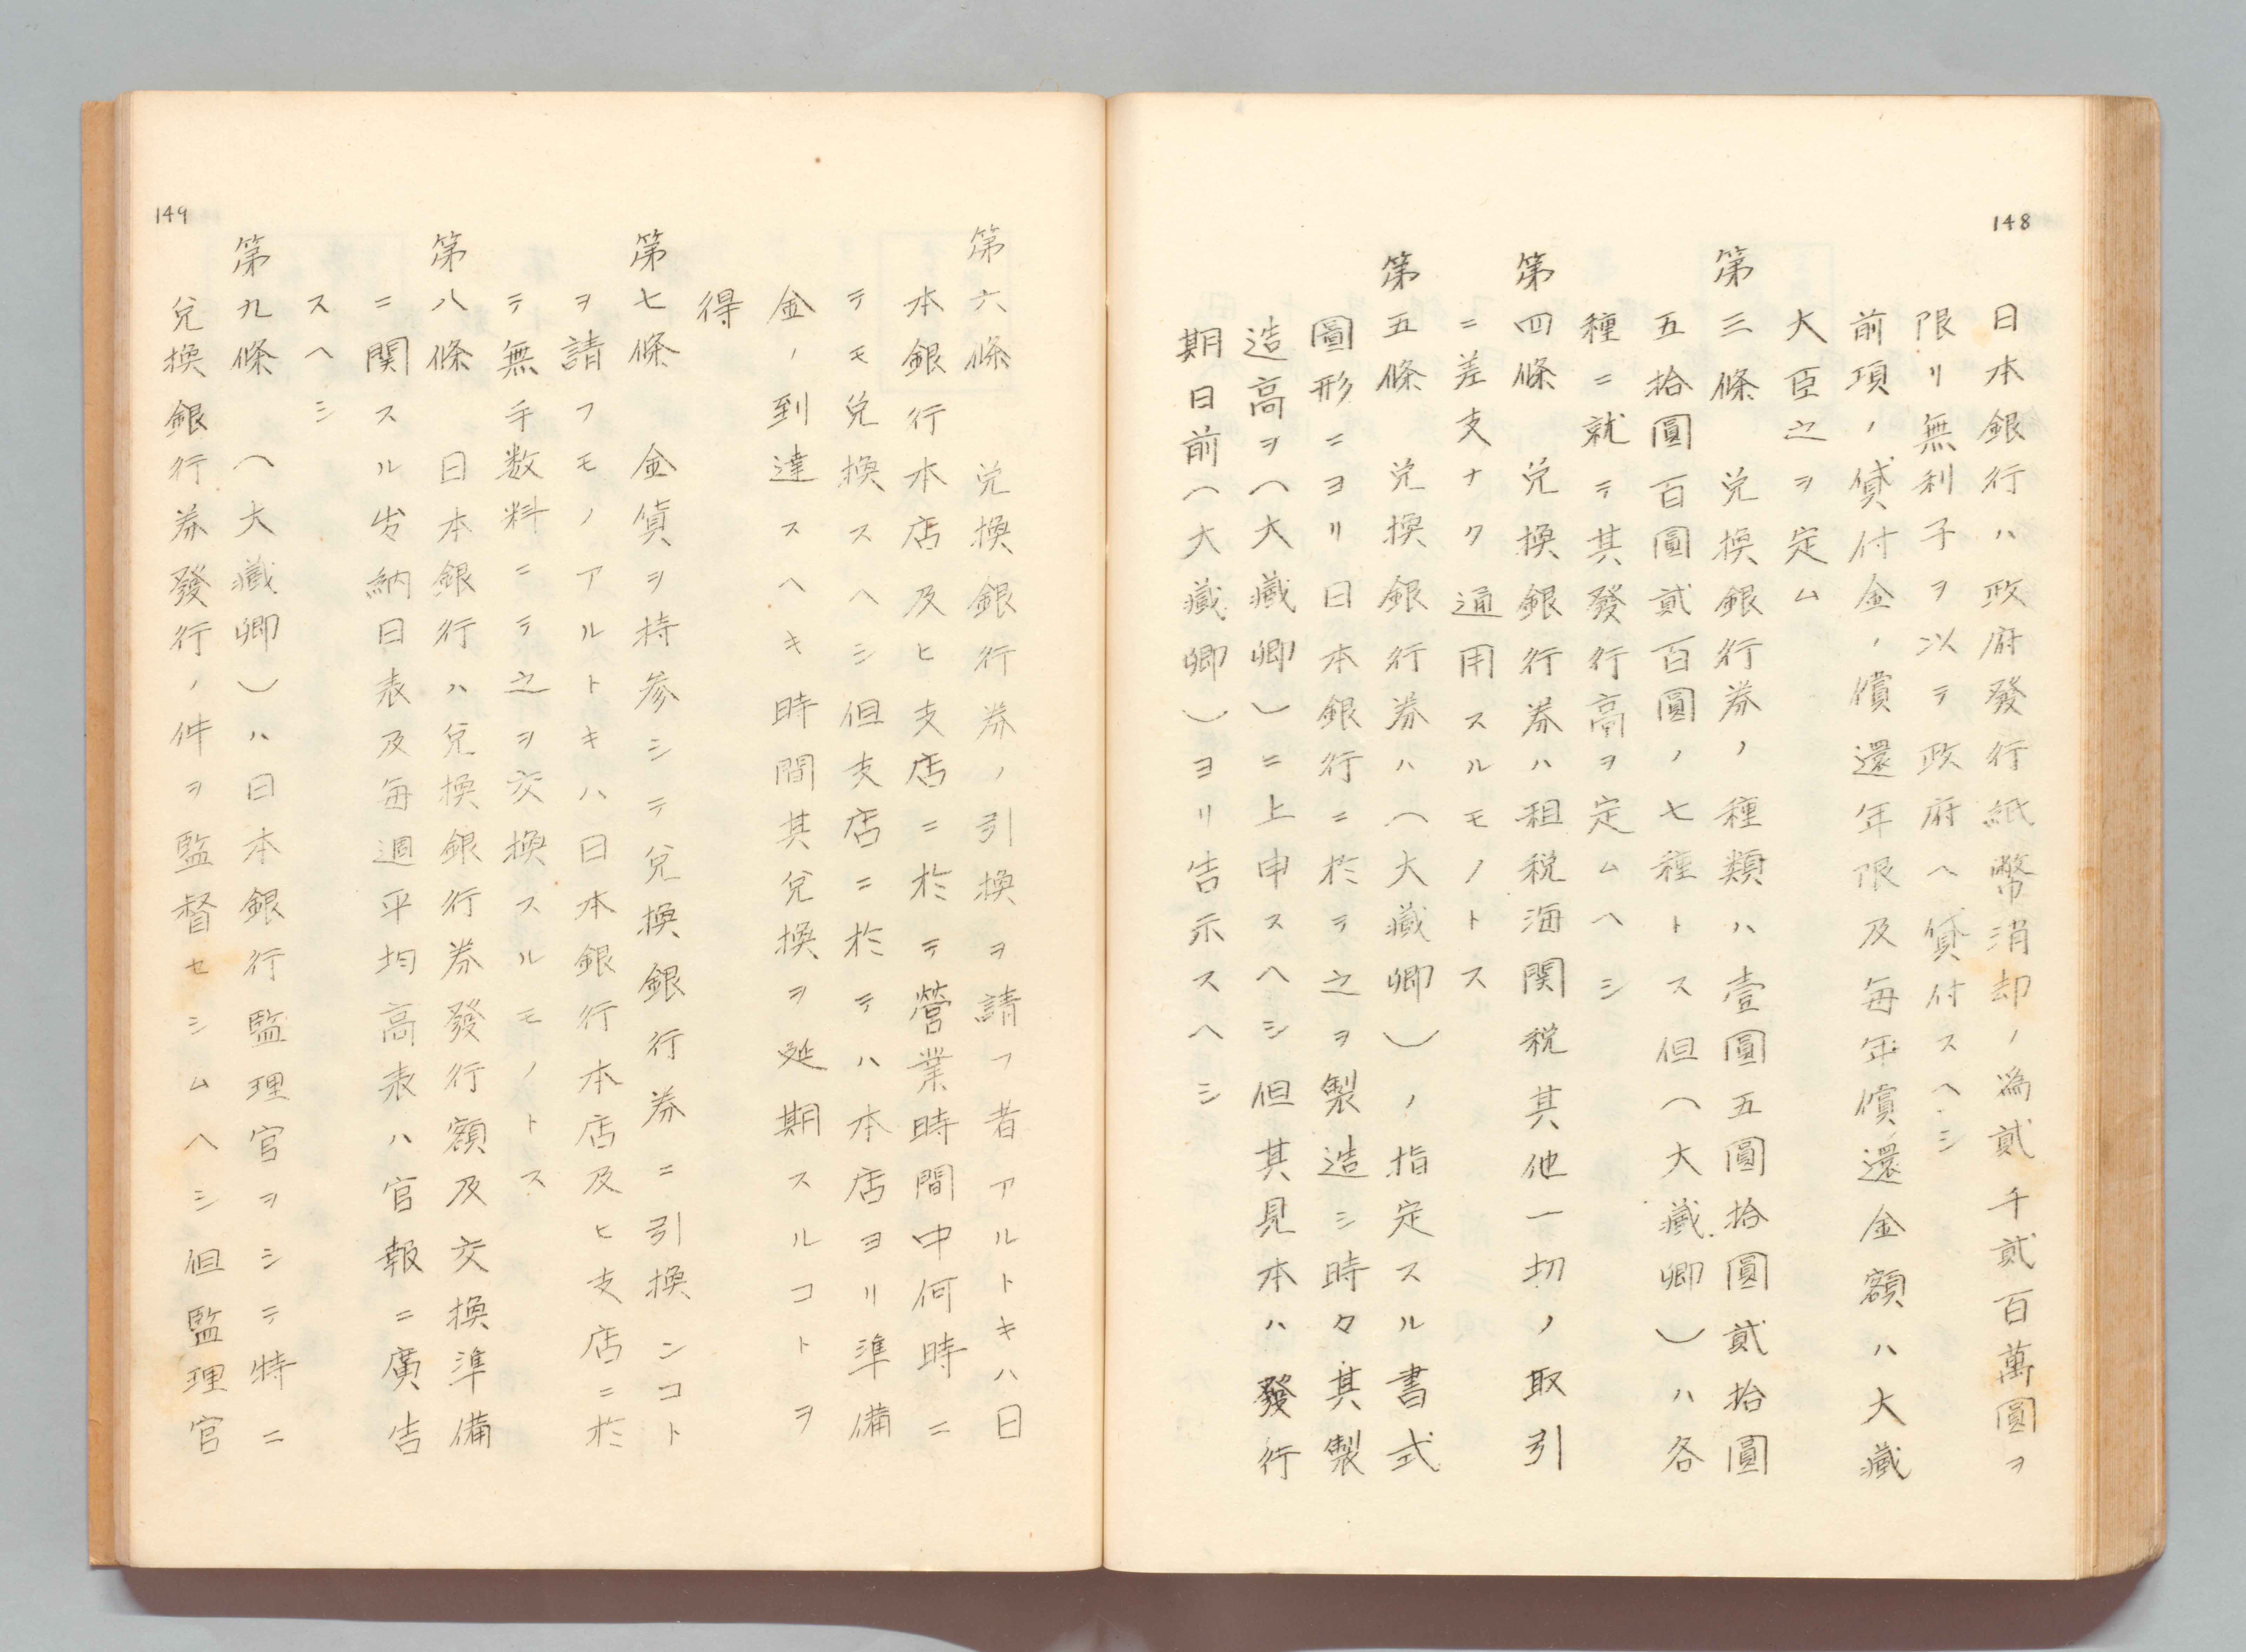 148
日本銀行ハ政府發行紙幣消却ノ爲貳千貳百萬圓ヲ
限リ無利子ヲ以テ政府ヘ貸付スヘシ
前項ノ貸付金ノ償還年限及每年償還金額ハ大藏
大臣之ヲ定ム
第三條　兌換銀行券ノ種類ハ壹圓五圓拾圓貳拾圓
五拾圓百圓貳百圓ノ七種トス但(大藏卿)ハ各
種ニ就テ其發行高ヲ定ムヘシ
第四條　兌換銀行券ハ租税海関税其他一切ノ取引
ニ差支ナク通用スルモノトス
第五條　兌換銀行券ハ(大藏卿)ノ指定スル書式
圖形ニヨリ日本銀行ニ於テ之ヲ製造シ時々其製
造高ヲ(大藏卿)ニ上申スヘシ但其見本ハ發行
期日前(大藏卿)ヨリ告示スヘシ
第六條　兌換銀行券ノ引換ヲ請フ者アルトキハ日
本銀行本店及ヒ支店ニ於テ營業時間中何時ニ
テモ兌換スヘシ但支店ニ於テハ本店ヨリ準備
金ノ到達スヘキ時間其兌換ヲ延期スルコトヲ
得
第七條　金貨ヲ持参シテ兌換銀行券ニ引換ンコト
ヲ請フモノアルトキハ日本銀行本店及ヒ支店ニ於
テ無手数料ニテ之ヲ交換スルモノトス
第八條　日本銀行ハ兌換銀行券發行額及交換準備
ニ関スル出納日表及每週平均高表ハ官報ニ廣告
スヘシ
第九條　(大藏卿)ハ日本銀行監理官ヲシテ特ニ
兌換銀行券發行ノ件ヲ監督セシムヘシ但監理官
149